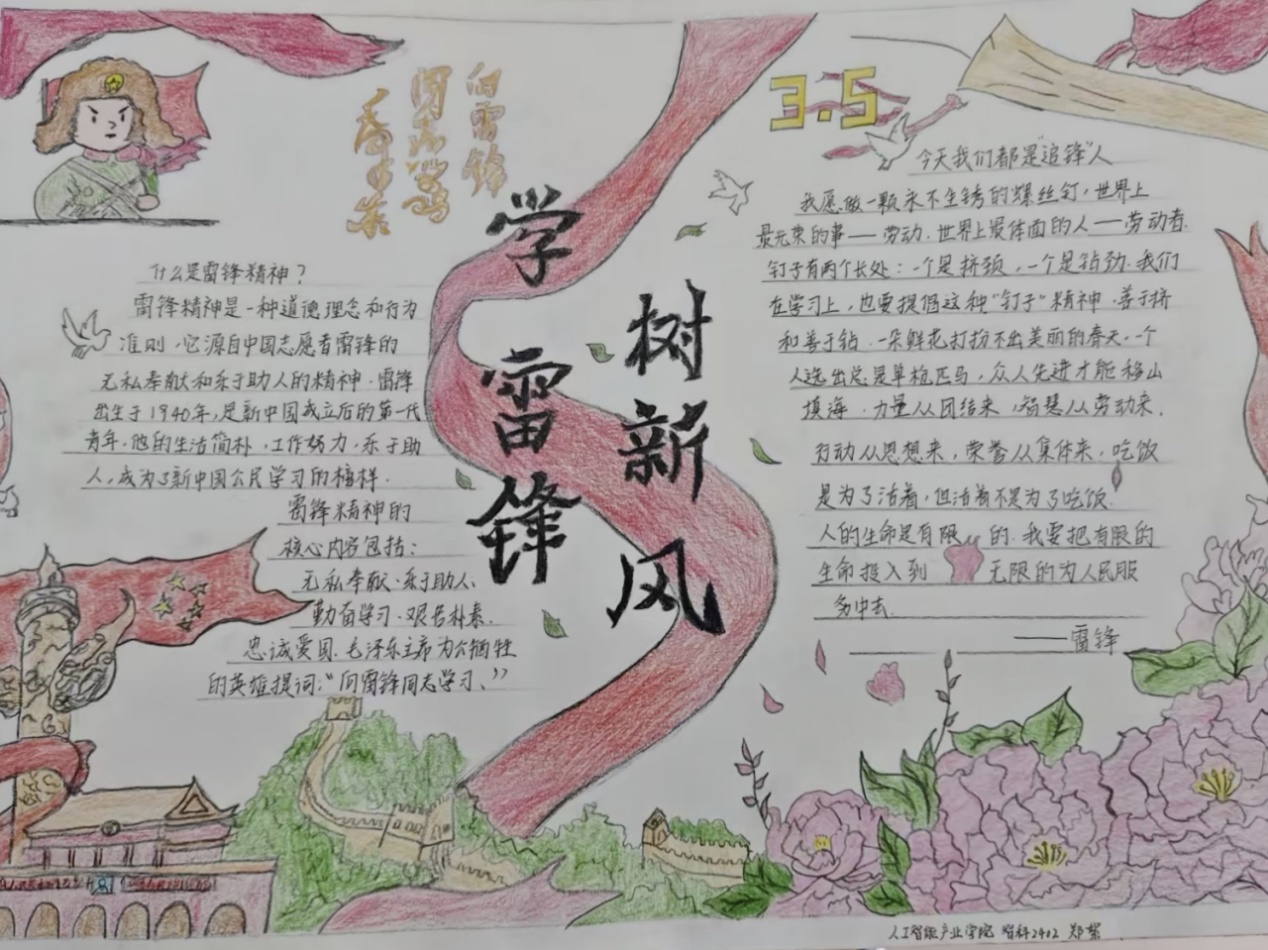 向雷锋
同志学习
毛泽东
学雷锋
树新风
什么是雷锋精神？
雷锋精神是一种道德理念和行为
准则，它源自中国志愿者雷锋的
无私奉献和乐于助人的精神.雷锋
出生于1940年，是新中国成立后的第一代
青年.他的生活简朴，工作努力，乐于助
人，成为了新中国公民学习的榜样.
雷锋精神的
核心内容包括：
无私奉献.乐于助人、
勤奋学习.艰苦朴素.
忠诚爱国.毛泽东主席为公牺牲
的英雄提词：“向雷锋同志学习、”
3.5
今天我们都是“追锋”人
我愿做一颗永不生锈的螺丝钉，世界上
最光荣的事——劳动.世界上最体面的人——劳动者.
钉子有两个长处：一个是挤颈，一个是钻劲.我们
在学习上，也要提倡这种“钉子”精神.善于挤
和善于钻.一朵鲜花打扮不出美丽的春天.一个
人选出总是单枪匹马，众人先进才能移山
填海.力量从团结来，智慧从劳动来，
行动从思想来，荣誉从集体来，吃饭
是为了活着，但活着不是为了吃饭！
人的生命是有限的.我要把有限的
生命投入到无限的为人民服
务中去.
——雷锋
人工智能产业学院 智科2402 郑